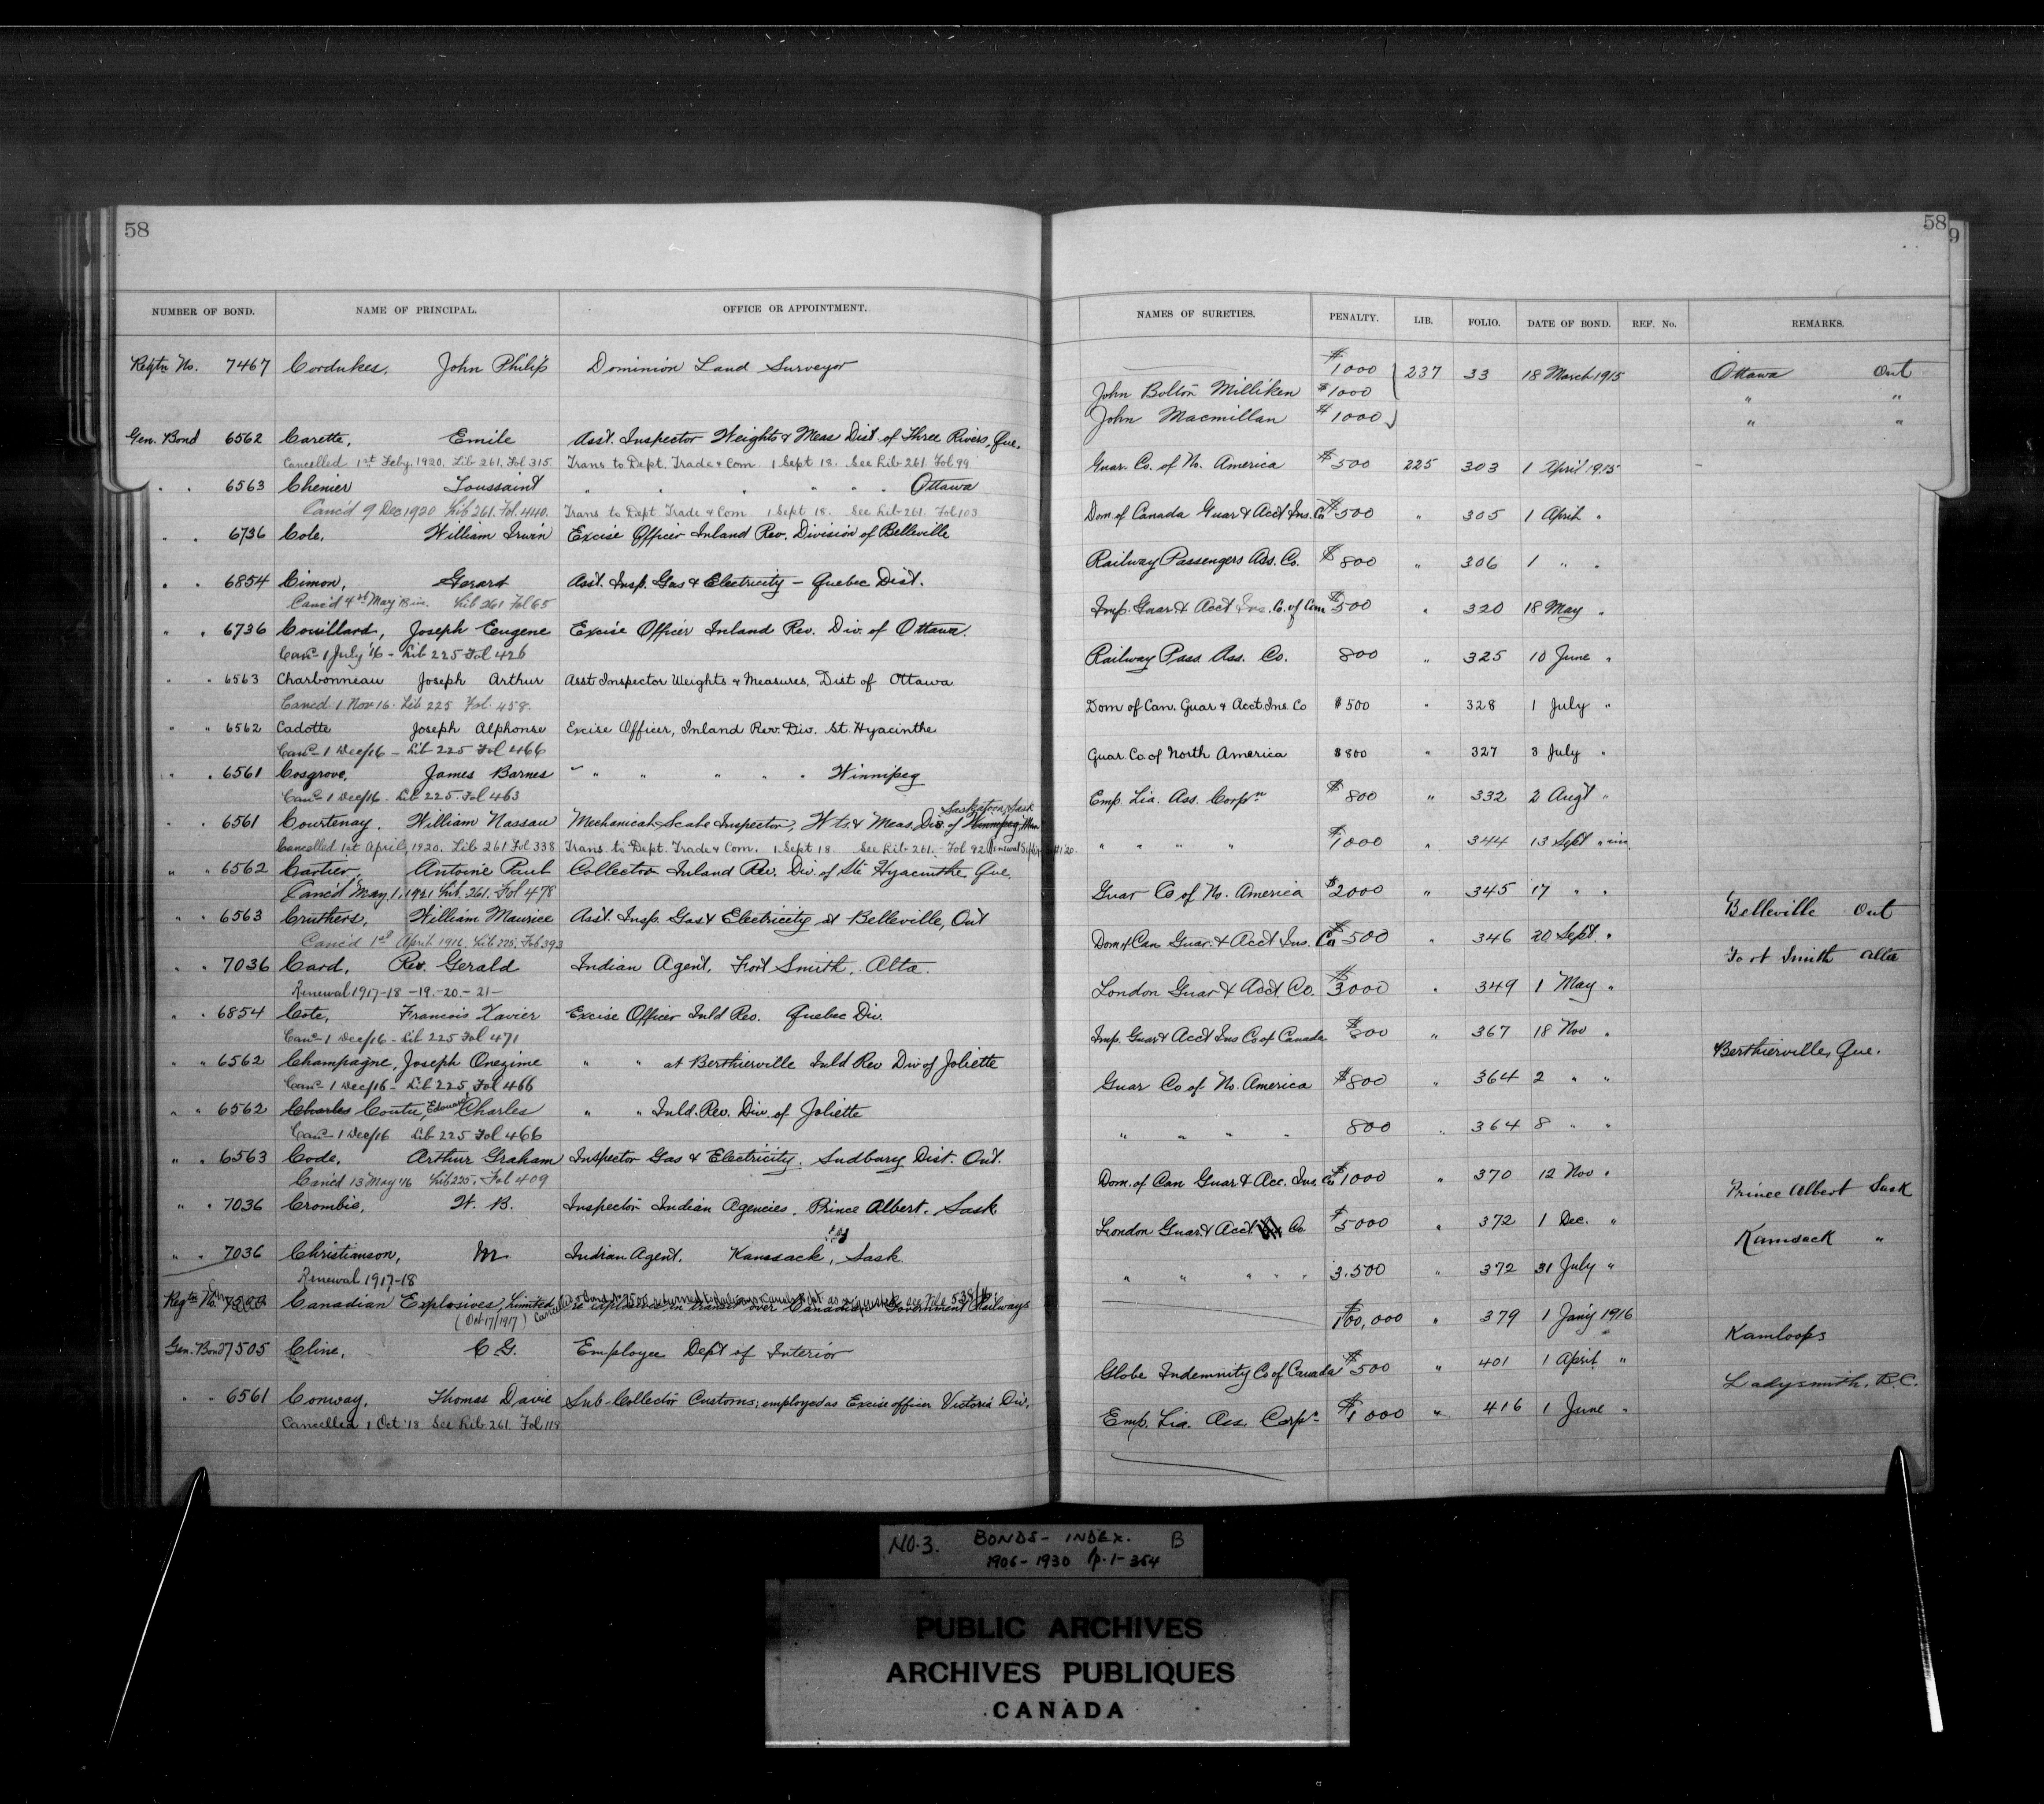 58
NUMBER OF BOND. NAME OF PRINCIPAL. OFFICE OR APPOINTMENT.
Regtn No. 7467 Cordukes, John Philip Dominion Land Surveyor
Gen. Bond 6562 Carette, Emile Asst. Inspector Weights & Meas Dist. of Three Rivers, Que.
Cancelled 1st Feby. 1920. Lib 261. Fol 315. Trans to Dept. Trade & Com. 1 Sept 18. See Lib 261. Fol 99
" " 6563 Chenier Toussaint " " " " " " Ottawa
Canc'd 9 Dec 1920 Lib 261. Fol. 440. Trans to Dept Trade & Com 1 Sept 18. See Lib 261. Fol 103
" " 6736 Cole, William Irwin Excise Officer Inland Rev. Division of Belleville
" " 6854 Cimon, Gerard Asst. Insp. Gas & Electricity – Quebec Dist.
Canc'd 4th May 18 Lib 261 Fol 65
" " 6736 Couillard, Joseph Eugene Excise Officer Inland Rev. Div. of Ottawa.
Canc 1 July '16 - Lib 225 Fol 426
" " 6563 Charbonneau Joseph Arthur Asst Inspector Weights & Measures, Dist of Ottawa
Cancd 1 Nov 16. Lib 225 Fol. 458.
" " 6562 Cadotte Joseph Alphonse Excise Officer, Inland Rev. Div. St. Hyacinthe
Canc 1 Dec/16 - Lib 225 Fol 466
" " 6561 Cosgrove, James Barnes " " " " " " Winnipeg
Canc 1 Dec/16. Lib 225. Fol 463
Saskatoon, Sask
" " 6561 Courtenay, William Nassau Mechanical Scale Inspector, Wts & Meas, Div. of Winnipeg Man
Cancelled 1st April, 1920. Lib 261 Fol 338 Trans to Dept. Trade & Com. 1 Sept 18 See Lib 261. Fol 92
" " 6562 Cartier, Antoine Paul Collector Inland Rev. Div. of Ste Hyacinthe, Que.
Canc'd May, 1, 1921 Lib. 261. Fol 478
" " 6563 Cruthers, William Maurice Asst. Insp. Gas & Electricity at Belleville, Ont
Canc'd 1st April 1916. Lib 225. Fol 393
" " 7036 Card, Rev. Gerald Indian Agent, Fort Smith, Alta.
Renewal 1917-18 -19.-20.-21-
" " 6854 Cote, Francois Xavier Excise Officer Inld Rev. Quebec Div.
Canc 1 Dec/16 - Lib 225 Fol 471
" " 6562 Champagne, Joseph Onezime " " at Berthierville Inld Rev Div of Joliette
Canc 1 Dec/16 - Lib 225 Fol 466
" " 6562 Charles Coutu, Edouard Charles " " Inld. Rev. Div. of Joliette
Canc 1 Dec/16 Lib 225 Fol 466
" " 6563 Code, Arthur Graham Inspector Gas & Electricity. Sudbury Dist. Ont.
Canc'd 13 May '16 Lib 225. Fol 409
" " 7036 Crombie, W. B. Inspector Indian Agencies, Prince Albert, Sask
" " 7036 Christianson, M. Indian Agent, Kamsack, Sask.
Renewal 1917-18
Regtn No. Canadian Explosives, Limited re explosives in transit over Canadian Government Railways
(Oct 17/1917)
Gen. Bond 7505 Cline, C. G. Employee Dept of Interior
" " 6561 Conway, Thomas Davie Sub-Collector Customs; employed as Excise officer Victoria Div.
Cancelled 1 Oct '18 See Lib 261. Fol 118
58
9
NAMES OF SURETIES. PENALTY. LIB. FOLIO. DATE OF BOND. REF. No. REMARKS.
$1000 237 33 18 March 1915 Ottawa Ont
John Bolton Milliken $1000 " "
John Macmillan $1000 " "
Guar. Co. of No. America $500 225 303 1 April 1915
Dom. of Canada Guar & Acct Ins. Co $500 " 305 1 April "
Railway Passengers Ass. Co. $800 " 306 1 " "
Imp. Guar & Acct Ins. Co. of Can $500 " 320 18 May "
Railway Pass Ass. Co. 800 " 325 10 June "
Dom of Can. Guar & Acct. Ins Co $500 " 328 1 July "
Guar Co of North America $800 " 327 3 July "
Emp. Lia. Ass. Corpn $800 " 332 2 Augt "
" " " " $1000 " 344 13 Sept "
Guar Co of No. America $2000 " 345 17 " "
Belleville Ont
Dom of Can Guar. & Acct Ins. Co $500 " 346 20 Sept. "
Fort Smith Alta
London Guar & Acct Co. $3000 " 349 1 May "
Imp. Guar & Acct Ins Co of Canada $800 " 367 18 Nov "
Berthierville, Que.
Guar Co of No. America $800 " 364 2 " "
" " " " 800 " 364 8 " "
Dom. of Can Guar & Acc. Ins. Co $1000 " 370 12 Nov "
Prince Albert Sask
London Guar. & Acct. Co. $5000 " 372 1 Dec. "
Kamsack "
" " " " " 3.500 " 372 31 July "
$100,000 " 379 1 Jan'y 1916
Kamloops
Globe Indemnity Co of Canada $500 " 401 1 April "
Ladysmith, B.C.
Emp. Lia. Ass. Corpn $1000 " 416 1 June "
NO. 3. BONDS - INDEX. B
1906 - 1930 p. 1 - 354
PUBLIC ARCHIVES
ARCHIVES PUBLIQUES
CANADA